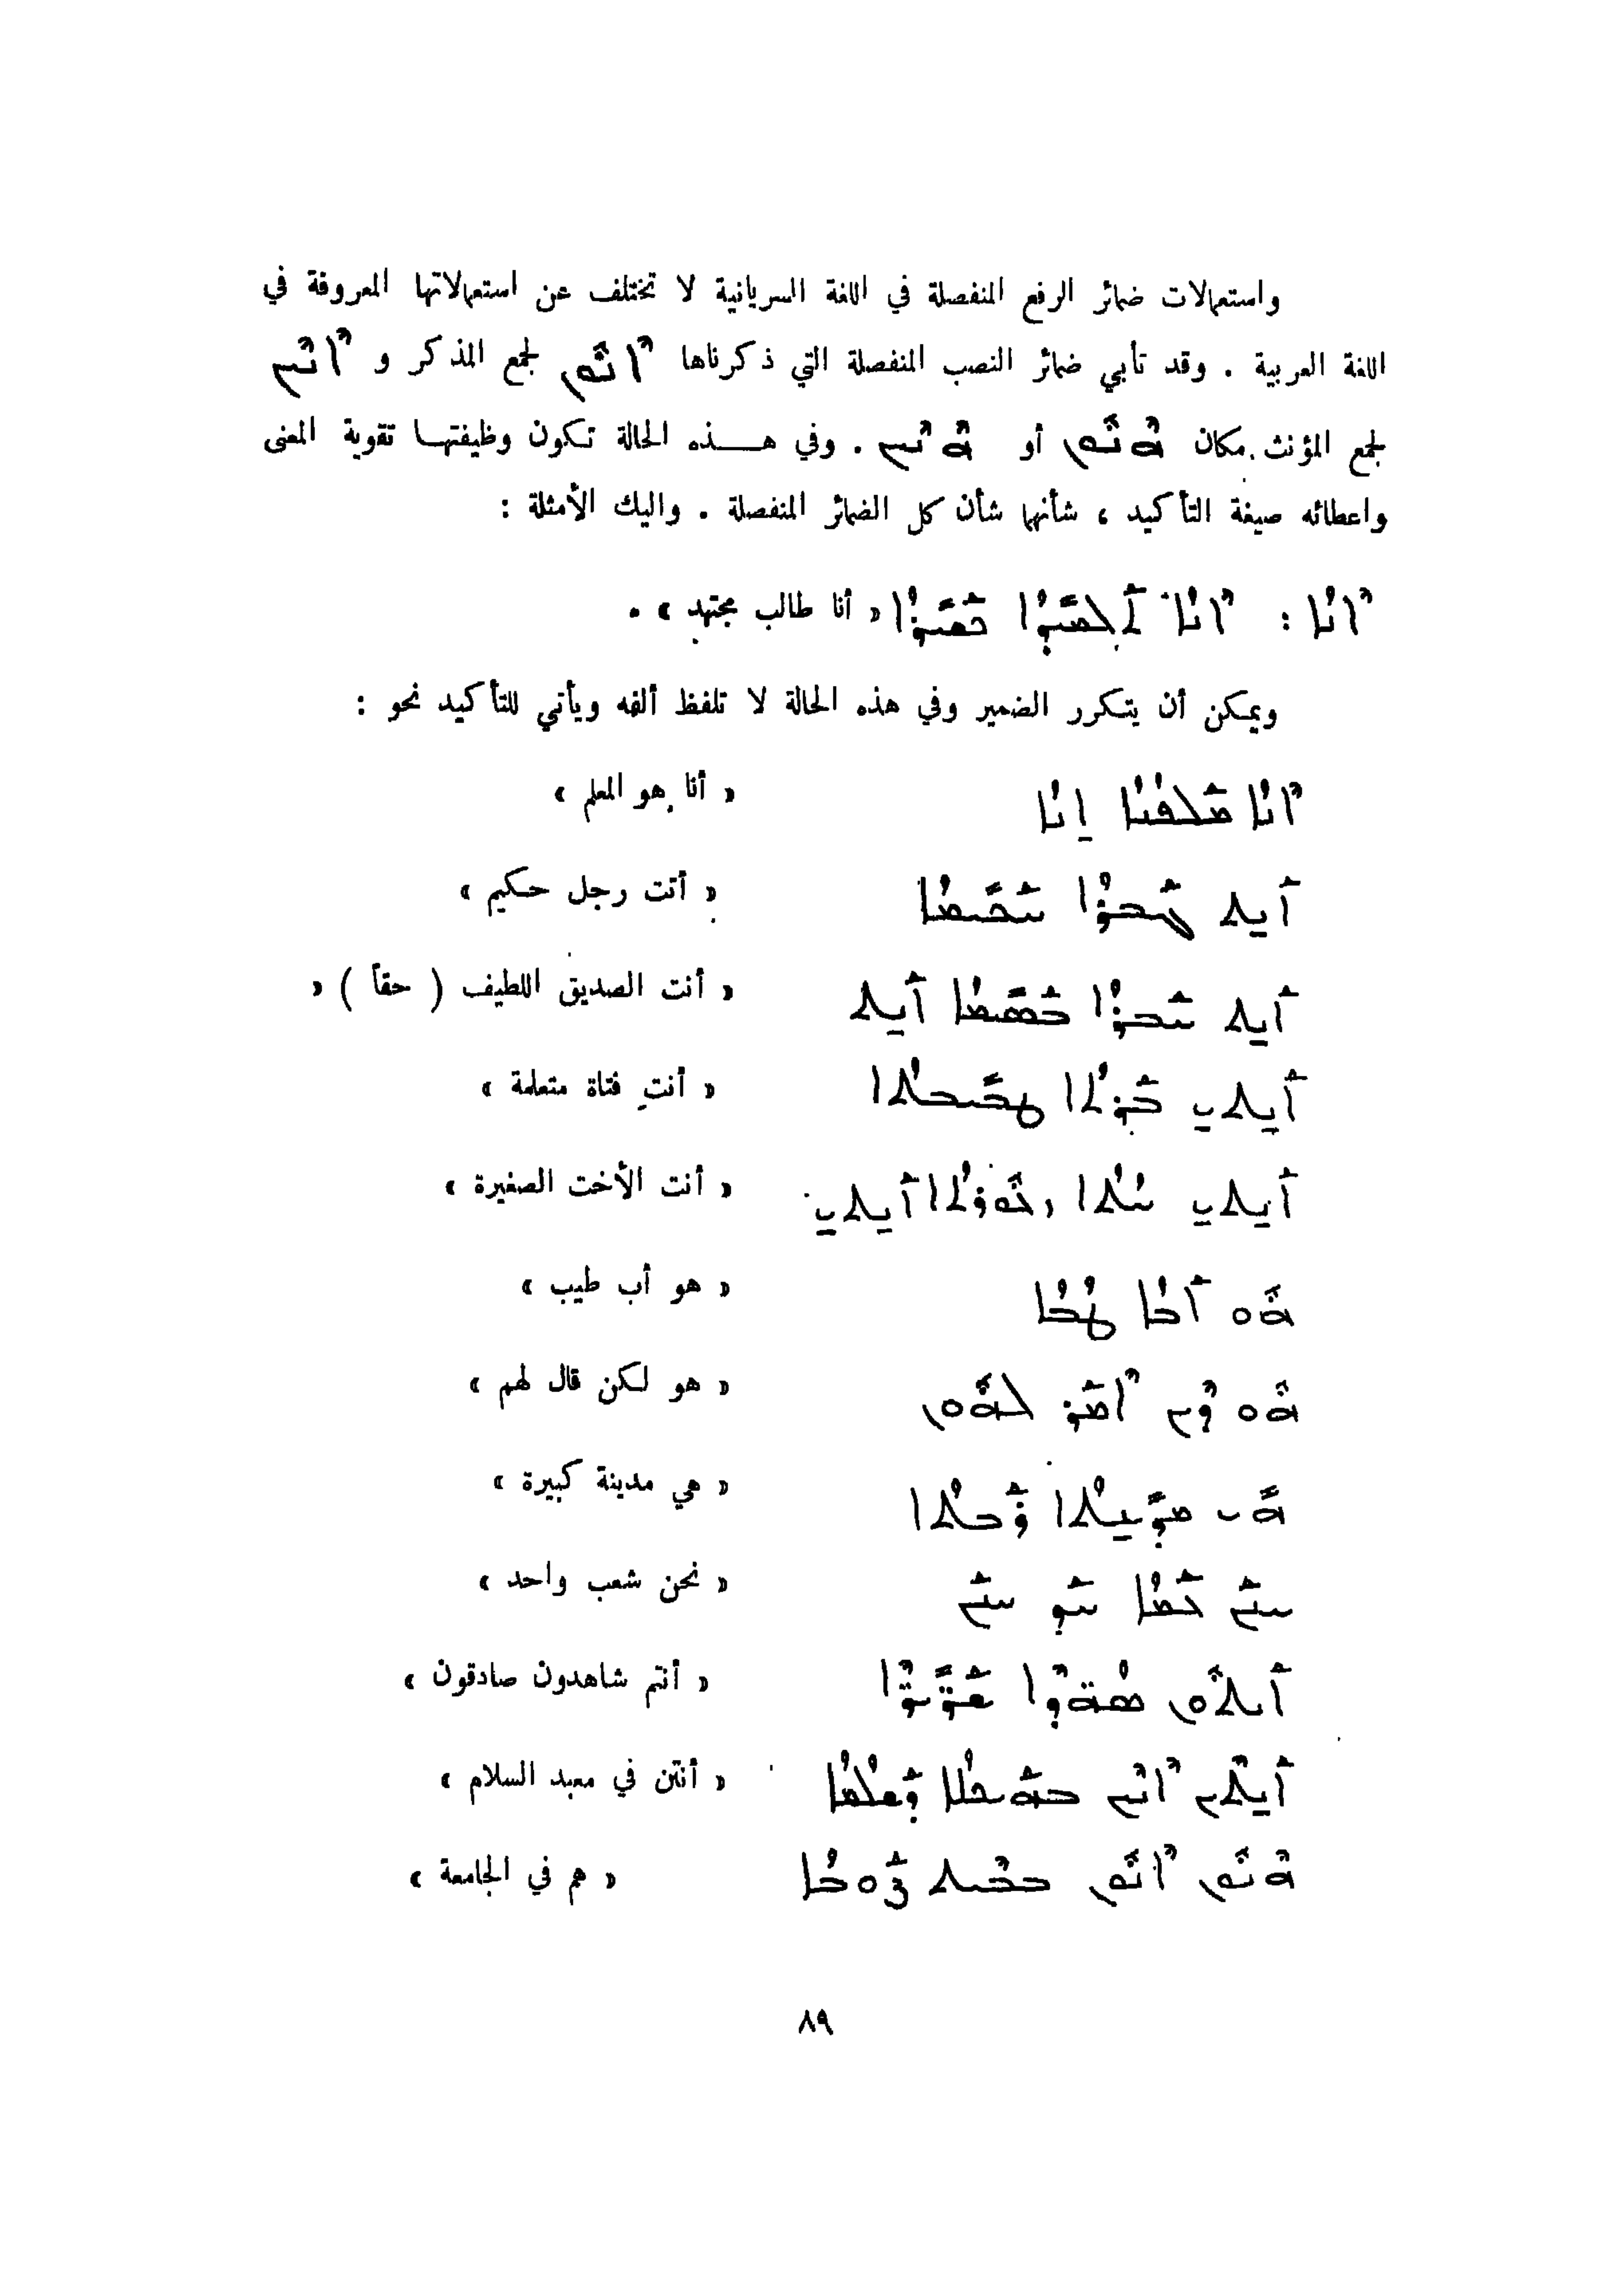 واستعمالات ضمائر الرفع المنفصلة في اللغة السريانية لا تختلف عن استعمالاتها المعروفة في
اللغة العربية . وقد تأبي ضمائر النصب المنفصلة التي ذكرناها ܐܢܘܢ لجمع المذكر و ܐܢܝܢ
لجمع المؤنث مكان ܗܢܘܢ أو ܗܢܝܢ . وفي هـذه الحالة تكون وظيفتهـا تقوية المعنى
واعطائه صيغة التأكيد ، شأنها شأن كل الضمائر المنفصلة . واليك الأمثلة :
ܐܢܐ : ܐܢܐ ܬܠܡܝܕܐ ܟܫܝܪܐ « أنا طالب مجتهد » .
ويمكن أن يتكرر الضمير وفي هذه الحالة لا تلفظ ألفه ويأتي للتأكيد نحو :
ܐܢܐ ܡܠܦܢܐ ܐܢܐ « أنا هو المعلم »
ܐܢܬ ܓܒܪܐ ܚܟܝܡܐ « أنت رجل حكيم »
ܐܢܬ ܚܒܪܐ ܒܣܝܡܐ ܐܢܬ « أنت الصديق اللطيف ( حقاً ) »
ܐܢܬܝ ܒܪܬܐ ܡܗܝܪܬܐ « أنتِ فتاة متعلمة »
ܐܢܬܝ ܚܬܐ ܙܥܘܪܬܐ ܐܢܬܝ « أنت الأخت الصغيرة »
ܗܘ ܐܒܐ ܛܒܐ « هو أب طيب »
ܗܘ ܕܝܢ ܐܡܪ ܠܗܘܢ « هو لكن قال لهم »
ܗܝ ܡܕܝܢܬܐ ܪܒܬܐ « هي مدينة كبيرة »
ܚܢܢ ܥܡܐ ܚܕ ܚܢܢ « نحن شعب واحد »
ܐܢܬܘܢ ܣܗܕܐ ܫܪܝܪܐ « أنتم شاهدون صادقون »
ܐܢܬܝܢ ܐܢܝܢ ܒܗܝܟܠܐ ܕܫܠܡܐ « أنتن في معبد السلام »
ܗܢܘܢ ܐܢܘܢ ܒܒܝܬ ܓܘܒܐ « هم في الجامعة »
٨٩